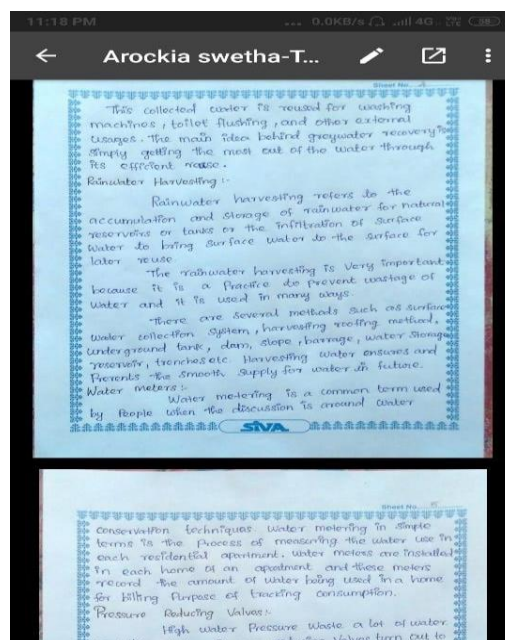 11:18 PM ... 0.0KB/s 4G 58
Arockia swetha-T...
Sheet No. 2
This collected water is reused for washing
machines, toilet flushing, and other external
usages. The main idea behind greywater recovery is
simply getting the most out of the water through
its efficient reuse.
Rainwater Harvesting :-
Rainwater harvesting refers to the
accumulation and storage of rainwater for natural
reservoirs or tanks or the infiltration of surface
water to bring surface water to the surface for
later reuse.
The rainwater harvesting is very important
because it is a Practice to prevent wastage of
water and it is used in many ways.
There are several methods such as surface
water collection system, harvesting roofing method,
underground tank, dam, slope, barrage, water storage
reservoir, trenches etc. Harvesting water ensures and
Prevents the smooth supply for water in future.
Water meters :-
Water metering is a common term used
by People when the discussion is around water
SIVA
Sheet No. 5
conservation techniques. Water metering in simple
terms is the Process of measuring the water use in
each residential apartment. Water meters are installed
in each home of an apartment and these meters
record the amount of water being used in a home
for billing Purpose of tracking consumption.
Pressure Reducing Valves:-
High water Pressure Waste a lot of water.
Valves turn out to